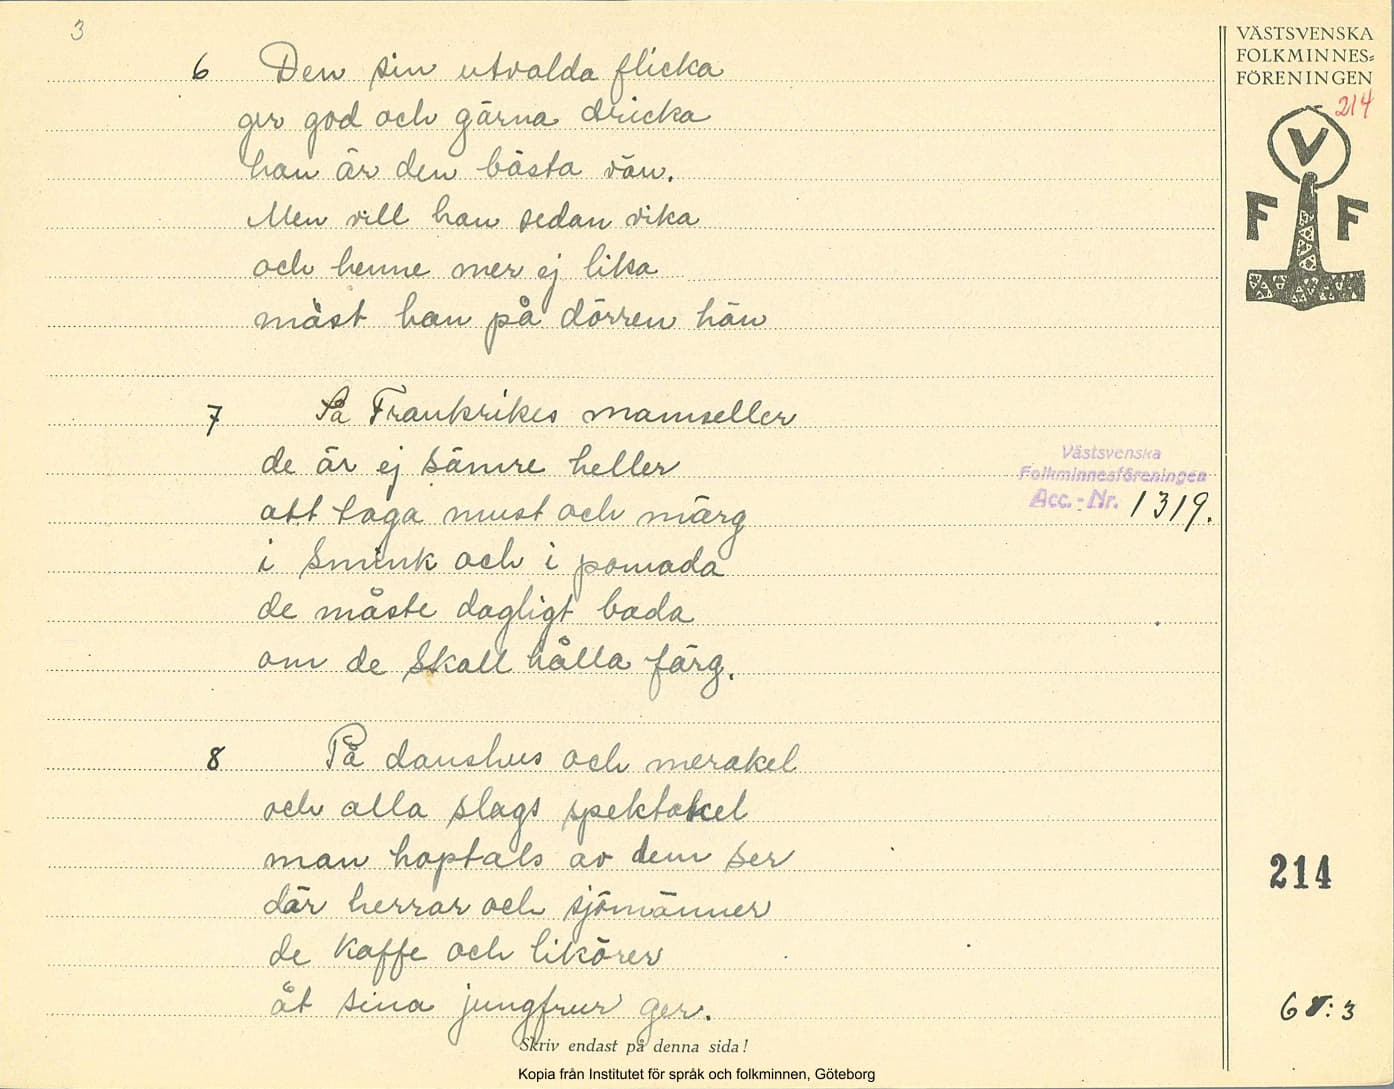 3
VÄSTSVENSKA
FOLKMINNES-
FÖRENINGEN
214
V
F F
6 Den sin utvalda flicka
ger god och gärna dricka
han är den bästa vän.
Men vill han sedan vika
och henne mer ej lika
måst han på dörren hän
7 På Frankrikes mamseller
de är ej sämre heller
att taga must och märg
i Smink och i pomada
de måste dagligt bada
om de Skall hålla färg.
Västsvenska
Folkminnesföreningen
Acc.-Nr. 1319.
8 På danshus och merakel
och alla slags spektakel
man hoptals av dem ser
där herrar och sjömänner
de Kaffe och likörer
åt sina jungfrur ger.
214
6 8:3
Skriv endast på denna sida!
Kopia från Institutet för språk och folkminnen, Göteborg